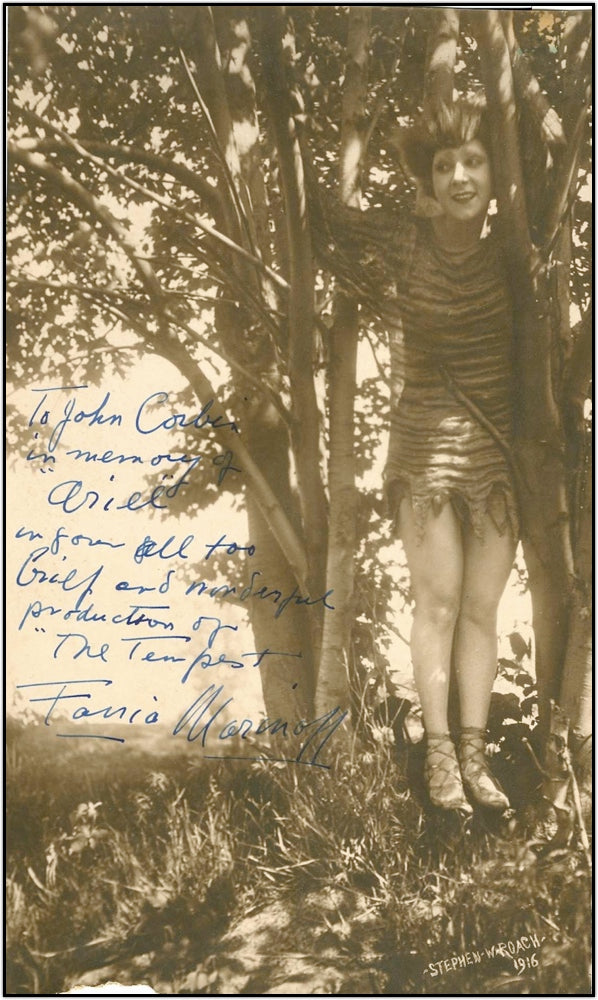 To John Corbin
in memory of
"Ariel"
in your all too
brief and wonderful
production of
"The Tempest
Fania Marinoff
-STEPHEN-W-ROACH-
1916